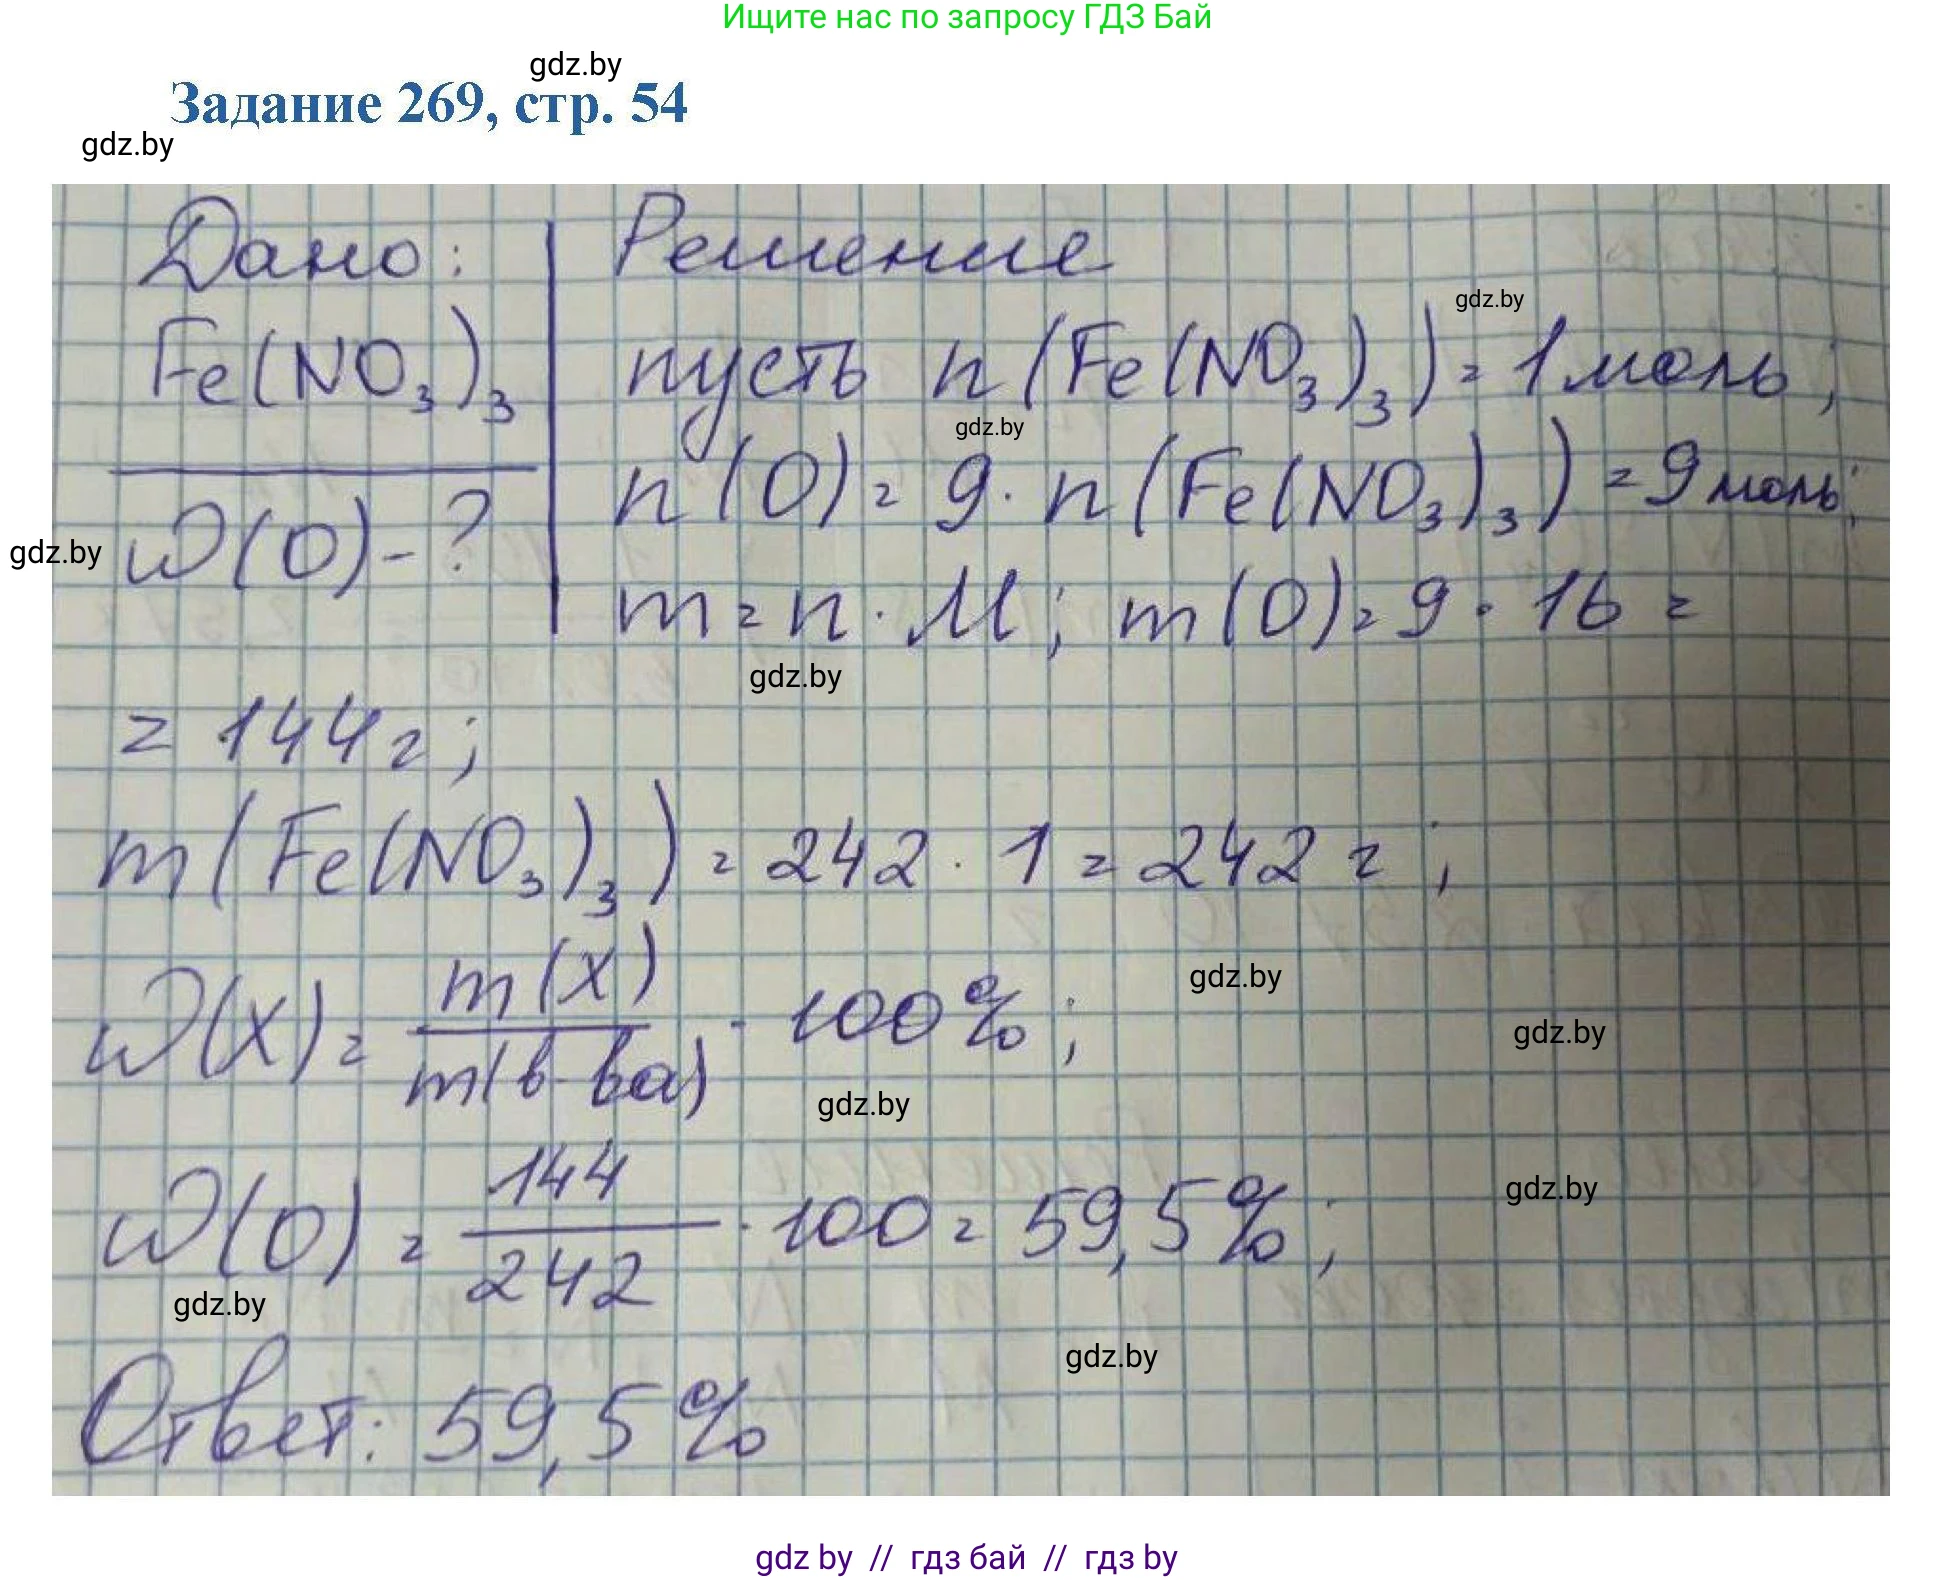 Ищите нас по запросу ГДЗ Бай
gdz.by
Задание 269, стр. 54
gdz.by
Дано:
Fe(NO₃)₃
ω(O) - ?
Решение
gdz.by
пусть n(Fe(NO₃)₃) = 1 моль;
gdz.by
n(O) = 9 · n(Fe(NO₃)₃) = 9 моль;
gdz.by
m = n · M; m(O) = 9 · 16 =
gdz.by
= 144 г;
m(Fe(NO₃)₃) = 242 · 1 = 242 г;
ω(X) = m(X) / m(в-ва) · 100%;
gdz.by
gdz.by
gdz.by
ω(O) = 144 / 242 · 100 = 59,5%;
gdz.by
gdz.by
gdz.by
Ответ: 59,5%
gdz by // гдз бай // гдз by